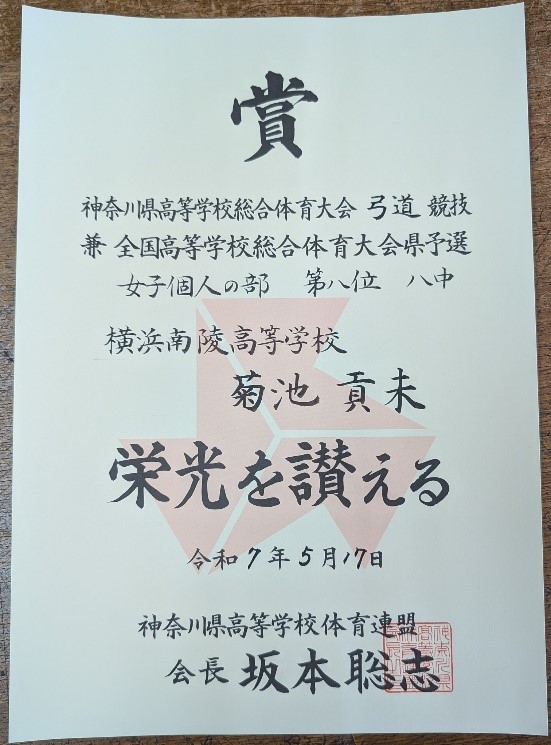 賞
神奈川県高等学校総合体育大会 弓道 競技
兼 全国高等学校総合体育大会県予選
女子個人の部 第八位 八中
横浜南陵高等学校
菊池 貢未
栄光を讃える
令和7年5月17日
神奈川県高等学校体育連盟
会長 坂本聡志